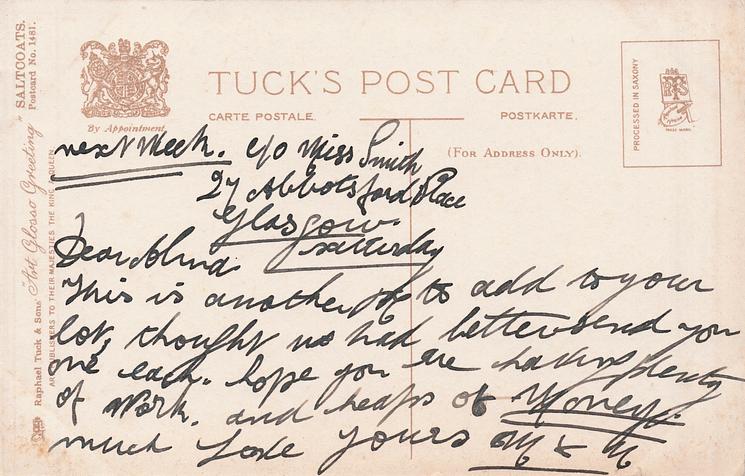 SALTCOATS.
Postcard No. 1481.
Raphael Tuck & Sons' "Art Glosso Greeting"
ART PUBLISHERS TO THEIR MAJESTIES THE KING & QUEEN.
By Appointment.
TUCK'S POST CARD
CARTE POSTALE.
POSTKARTE.
(FOR ADDRESS ONLY).
PROCESSED IN SAXONY
TRADE MARK.
next week. c/o Miss Smith
27 Abbotsford Place
Glasgow.
Satterday
Dear
This is another to add to your
lot, thought we had better send you
one each. hope you are having plenty
of work. and heaps of Money.
much Love yours M & M